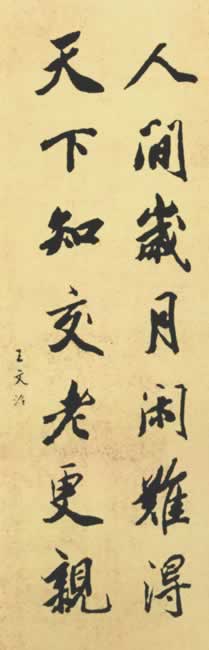 人間歲月閑難得
天下知交老更親
王文治